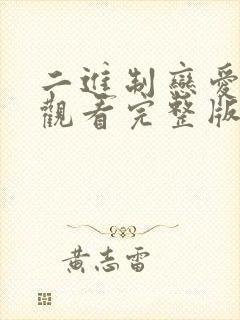 二進制戀愛
觀看完整版
黃志雷